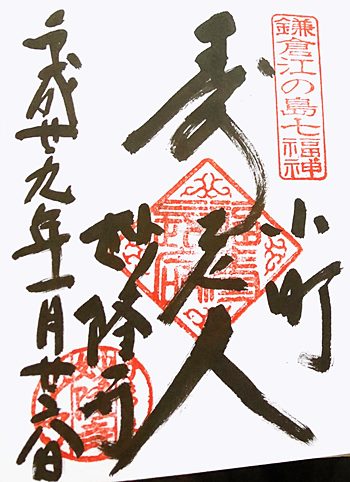 鎌倉江の島七福神
小町
寿老人
妙隆寺
平成廿九年一月廿六日